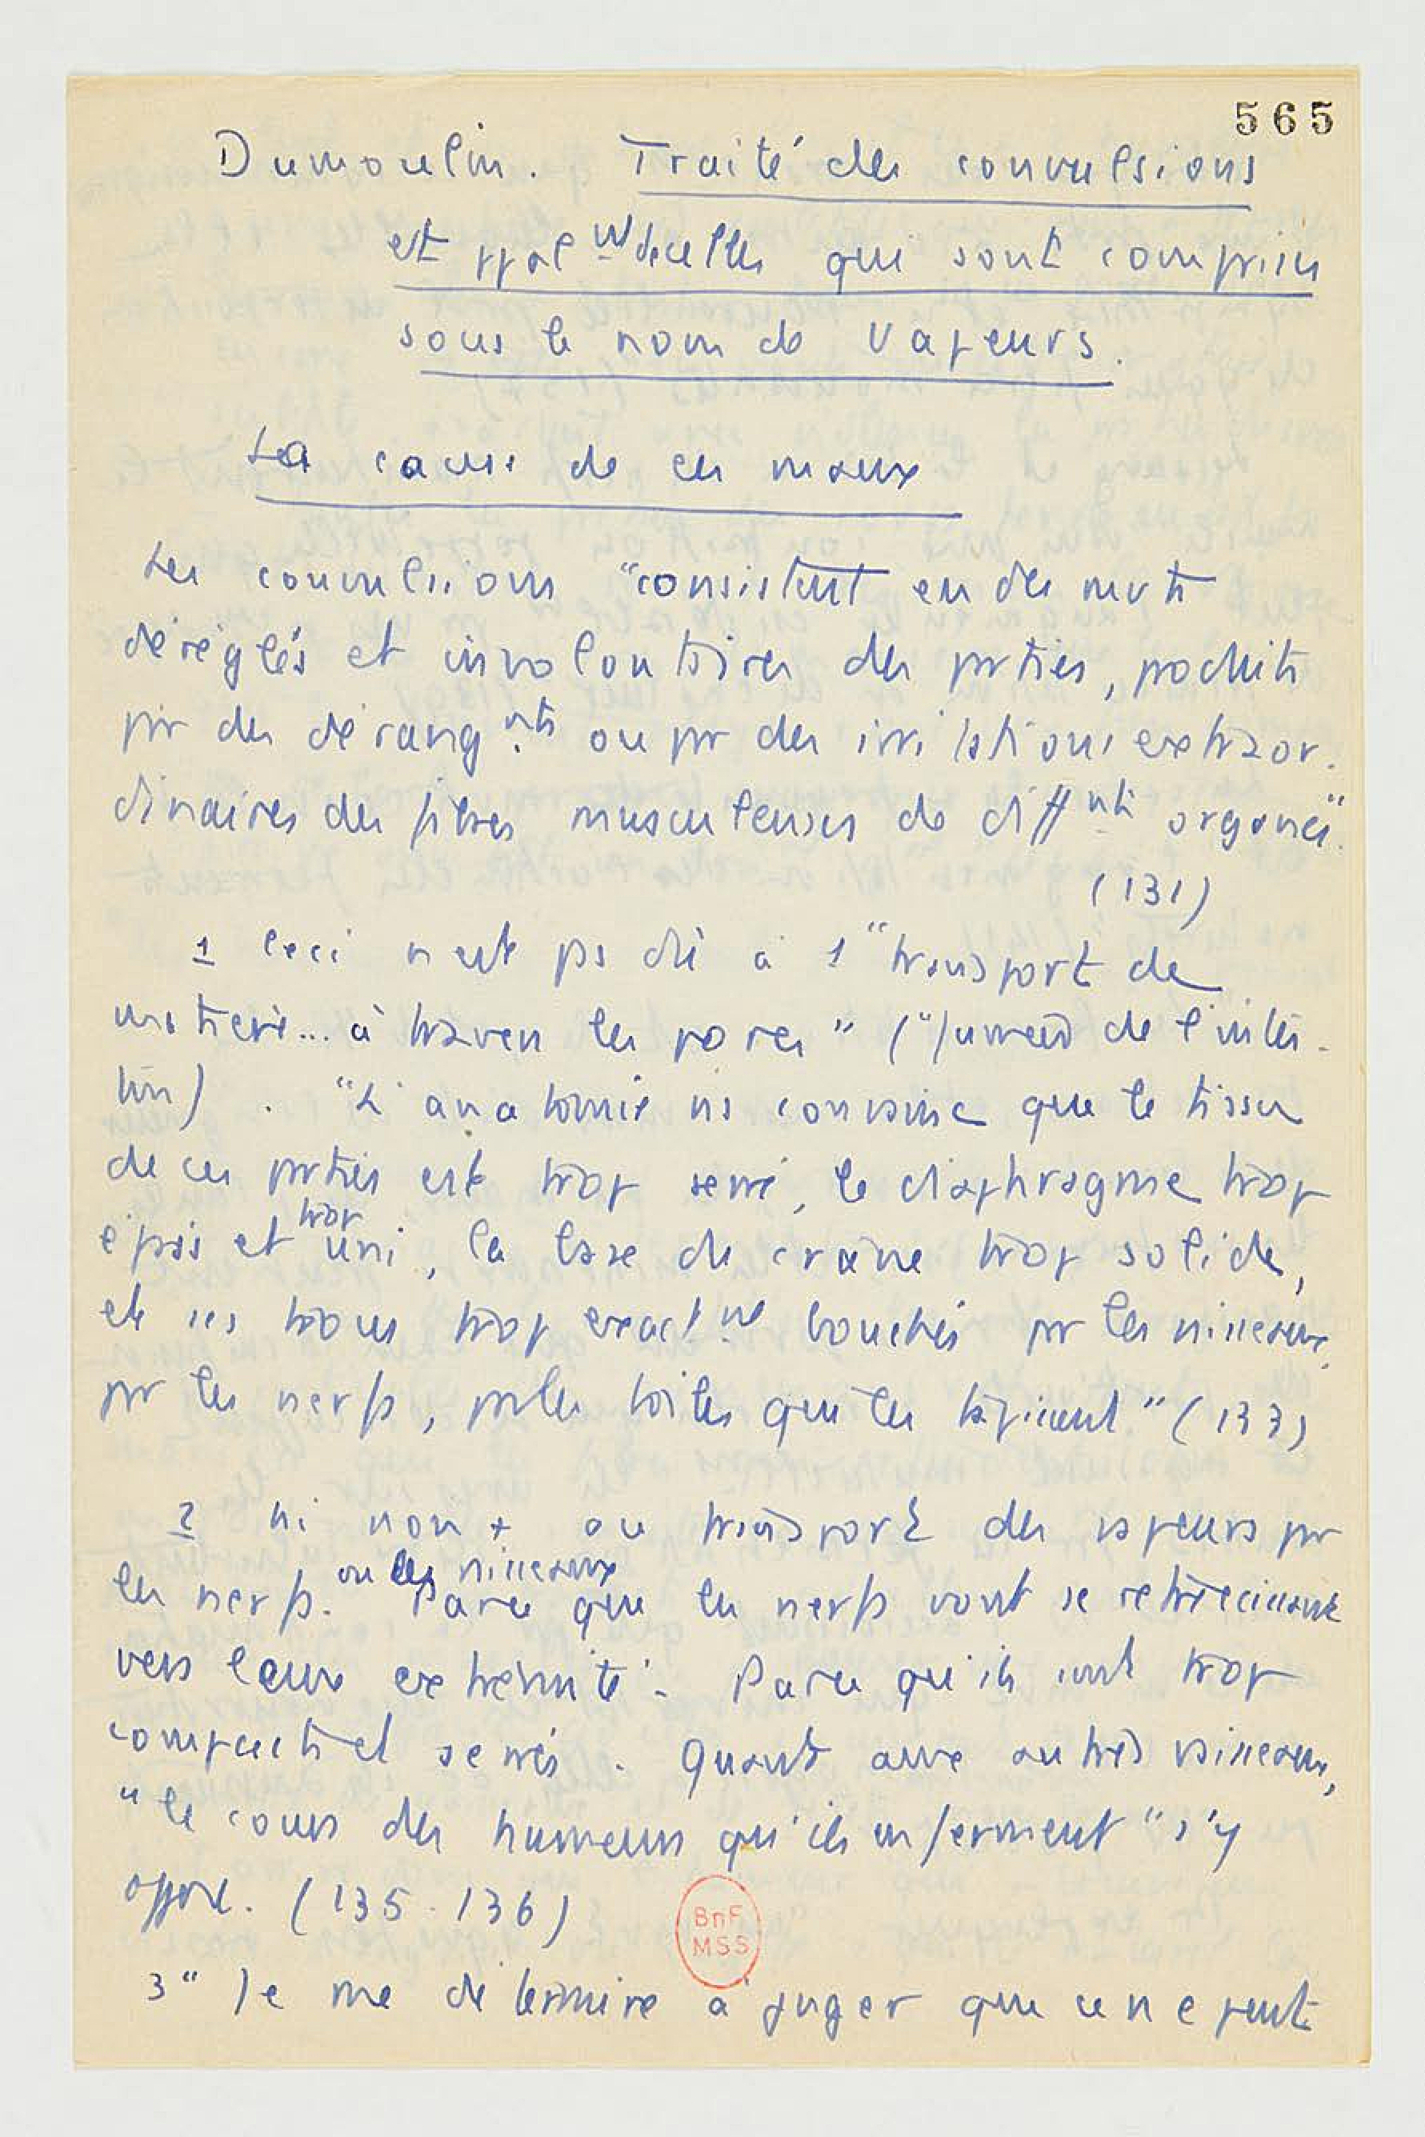 565
Dumoulin. Traité des convulsions
et ppalnt de celles qui sont comprises
sous le nom de Vapeurs.
La cause de ces maux
Les convulsions "consistent en des mvts
déréglés et involontaires des parties, produits
par des dérangnts ou par des irritations extraor-
dinaires des fibres musculeuses de diffnts organes".
(131)
1 Ceci n'est pas dû à 1 "transport de
matière... à travers les pores" ( de l'intes-
tin). "L'anatomie ns convainc que le tissu
de ces parties est trop serré, le diaphragme trop
épais et trop uni, la base du crâne trop solide,
et ses trous trop exactnt bouchés par les vaisseaux,
par les nerfs, par les toiles qui les tapissent" (133)
2 ni non + au transport des vapeurs par
les nerfs ou les vaisseaux. Parce que les nerfs vont se rétrécissant
vers leurs extrémités. Parce qu'ils sont trop
compacts et serrés. Quant aux autres vaisseaux,
"le cours des humeurs qu'ils enferment" s'y
oppose. (135-136)
3 "Je me détermine à juger que ce ne peut
BnF
MSS